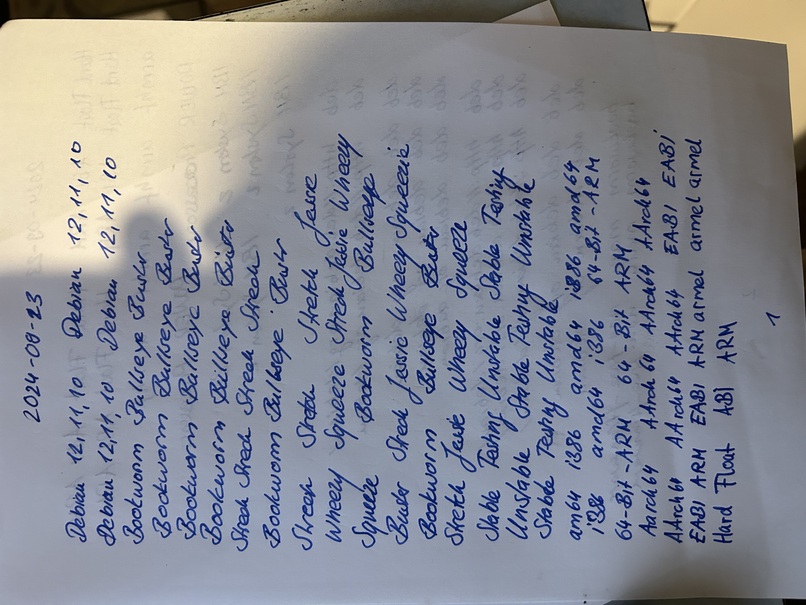 2024-09-23
Debian 12,11,10 Debian 12,11,10
Debian 12,11,10 Debian 12,11,10
Bookworm Bullseye Buster
Bookworm Bullseye Buster
Bookworm Bullseye Buster
Bookworm Bullseye Buster
Strech Strech Strech Strech
Bookworm Bullseye Buster
Strech Stretch Stretch Jessie
Wheezy Squeeze Strech Jessie Wheezy
Squeeze Bookworm Bullseye
Buster Strech Jassie Wheezy Squeeze
Bookworm Bullseye Buster
Stretch Jessie Wheezy Squeeze
Stable Testing Unstable Stable Testing
Unstable Stable Testing Unstable
Stable Testing Unstable
am64 i386 amd64 i386 amd64
i386 amd64 i386 64-Bit-ARM
64-Bit-ARM 64-Bit ARM
Aarch64 AArch64 AArch64 AArch64
AArch64 AArch64 AArch64 EABI EABI
EABI ARM EABI ARM armel armel armel
Hard Float ABI ARM
1